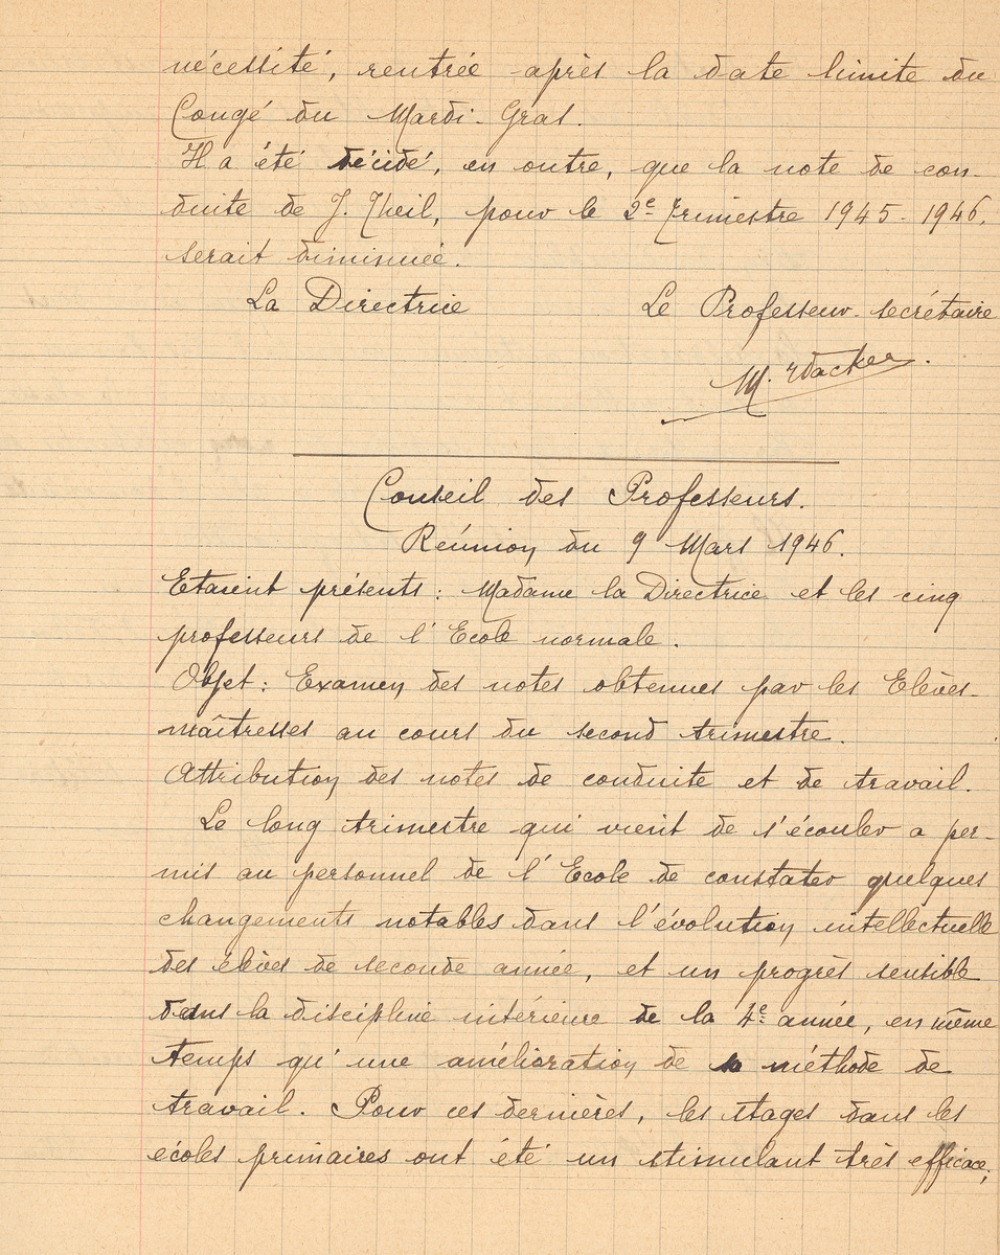 nécessité, rentrée après la date limite du
Congé du Mardi-Gras.
Il a été décidé, en outre, que la note de con-
duite de J. Theil, pour le 2e Trimestre 1945-1946.
serait diminuée.
La Directrice Le Professeur-secrétaire
M. Wacker.
Conseil des Professeurs.
Réunion du 9 Mars 1946.
Etaient présents : Madame la Directrice et les cinq
professeurs de l'Ecole normale.
Objet : Examen des notes obtenues par les Elèves-
maîtresses au cours du second trimestre.
Attribution des notes de conduite et de travail.
Le long trimestre qui vient de s'écouler a per-
mis au personnel de l'Ecole de constater quelques
changements notables dans l'évolution intellectuelle
des élèves de seconde année, et un progrès sensible
dans la discipline intérieure de la 4e année, en même
temps qu'une amélioration de la méthode de
travail. Pour ces dernières, les stages dans les
écoles primaires ont été un stimulant très efficace;